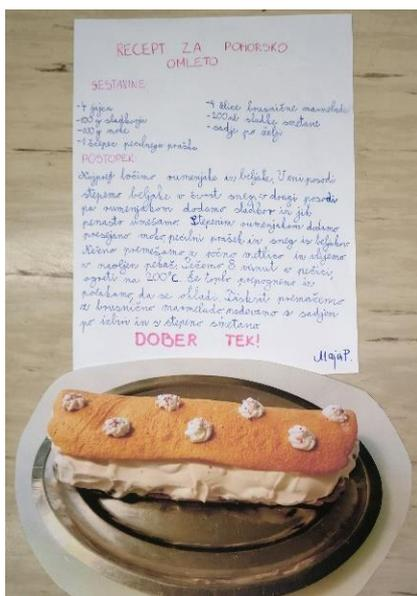 RECEPT ZA POHORSKO
OMLETO
SESTAVINE:
-4 jajca
-100g sladkorja
-100g moke
-1 ščepec pecilnega praška
-4 žlice brusnične marmelade
-200ml sladke smetane
-sadje po želji
POSTOPEK:
Najprej ločimo rumenjake in beljake. V eni posodi
stepemo beljake v čvrst sneg, v drugi posodi
pa rumenjakom dodamo sladkor in jih
penasto umešamo. Stepenim rumenjakom dodamo
presejano moko, pecilni prašek in sneg iz beljakov.
Nežno premešamo z ročno metlico in vlijemo
v naoljen pekač. Pečemo 8 minut v pečici,
ogreti na 200°C. Še toplo prepognemo in
počakamo, da se ohladi. Biskvit premažemo
z brusnično marmelado, nadevamo s sadjem
po izbiri in s stepeno smetano.
DOBER TEK!
Maja P.